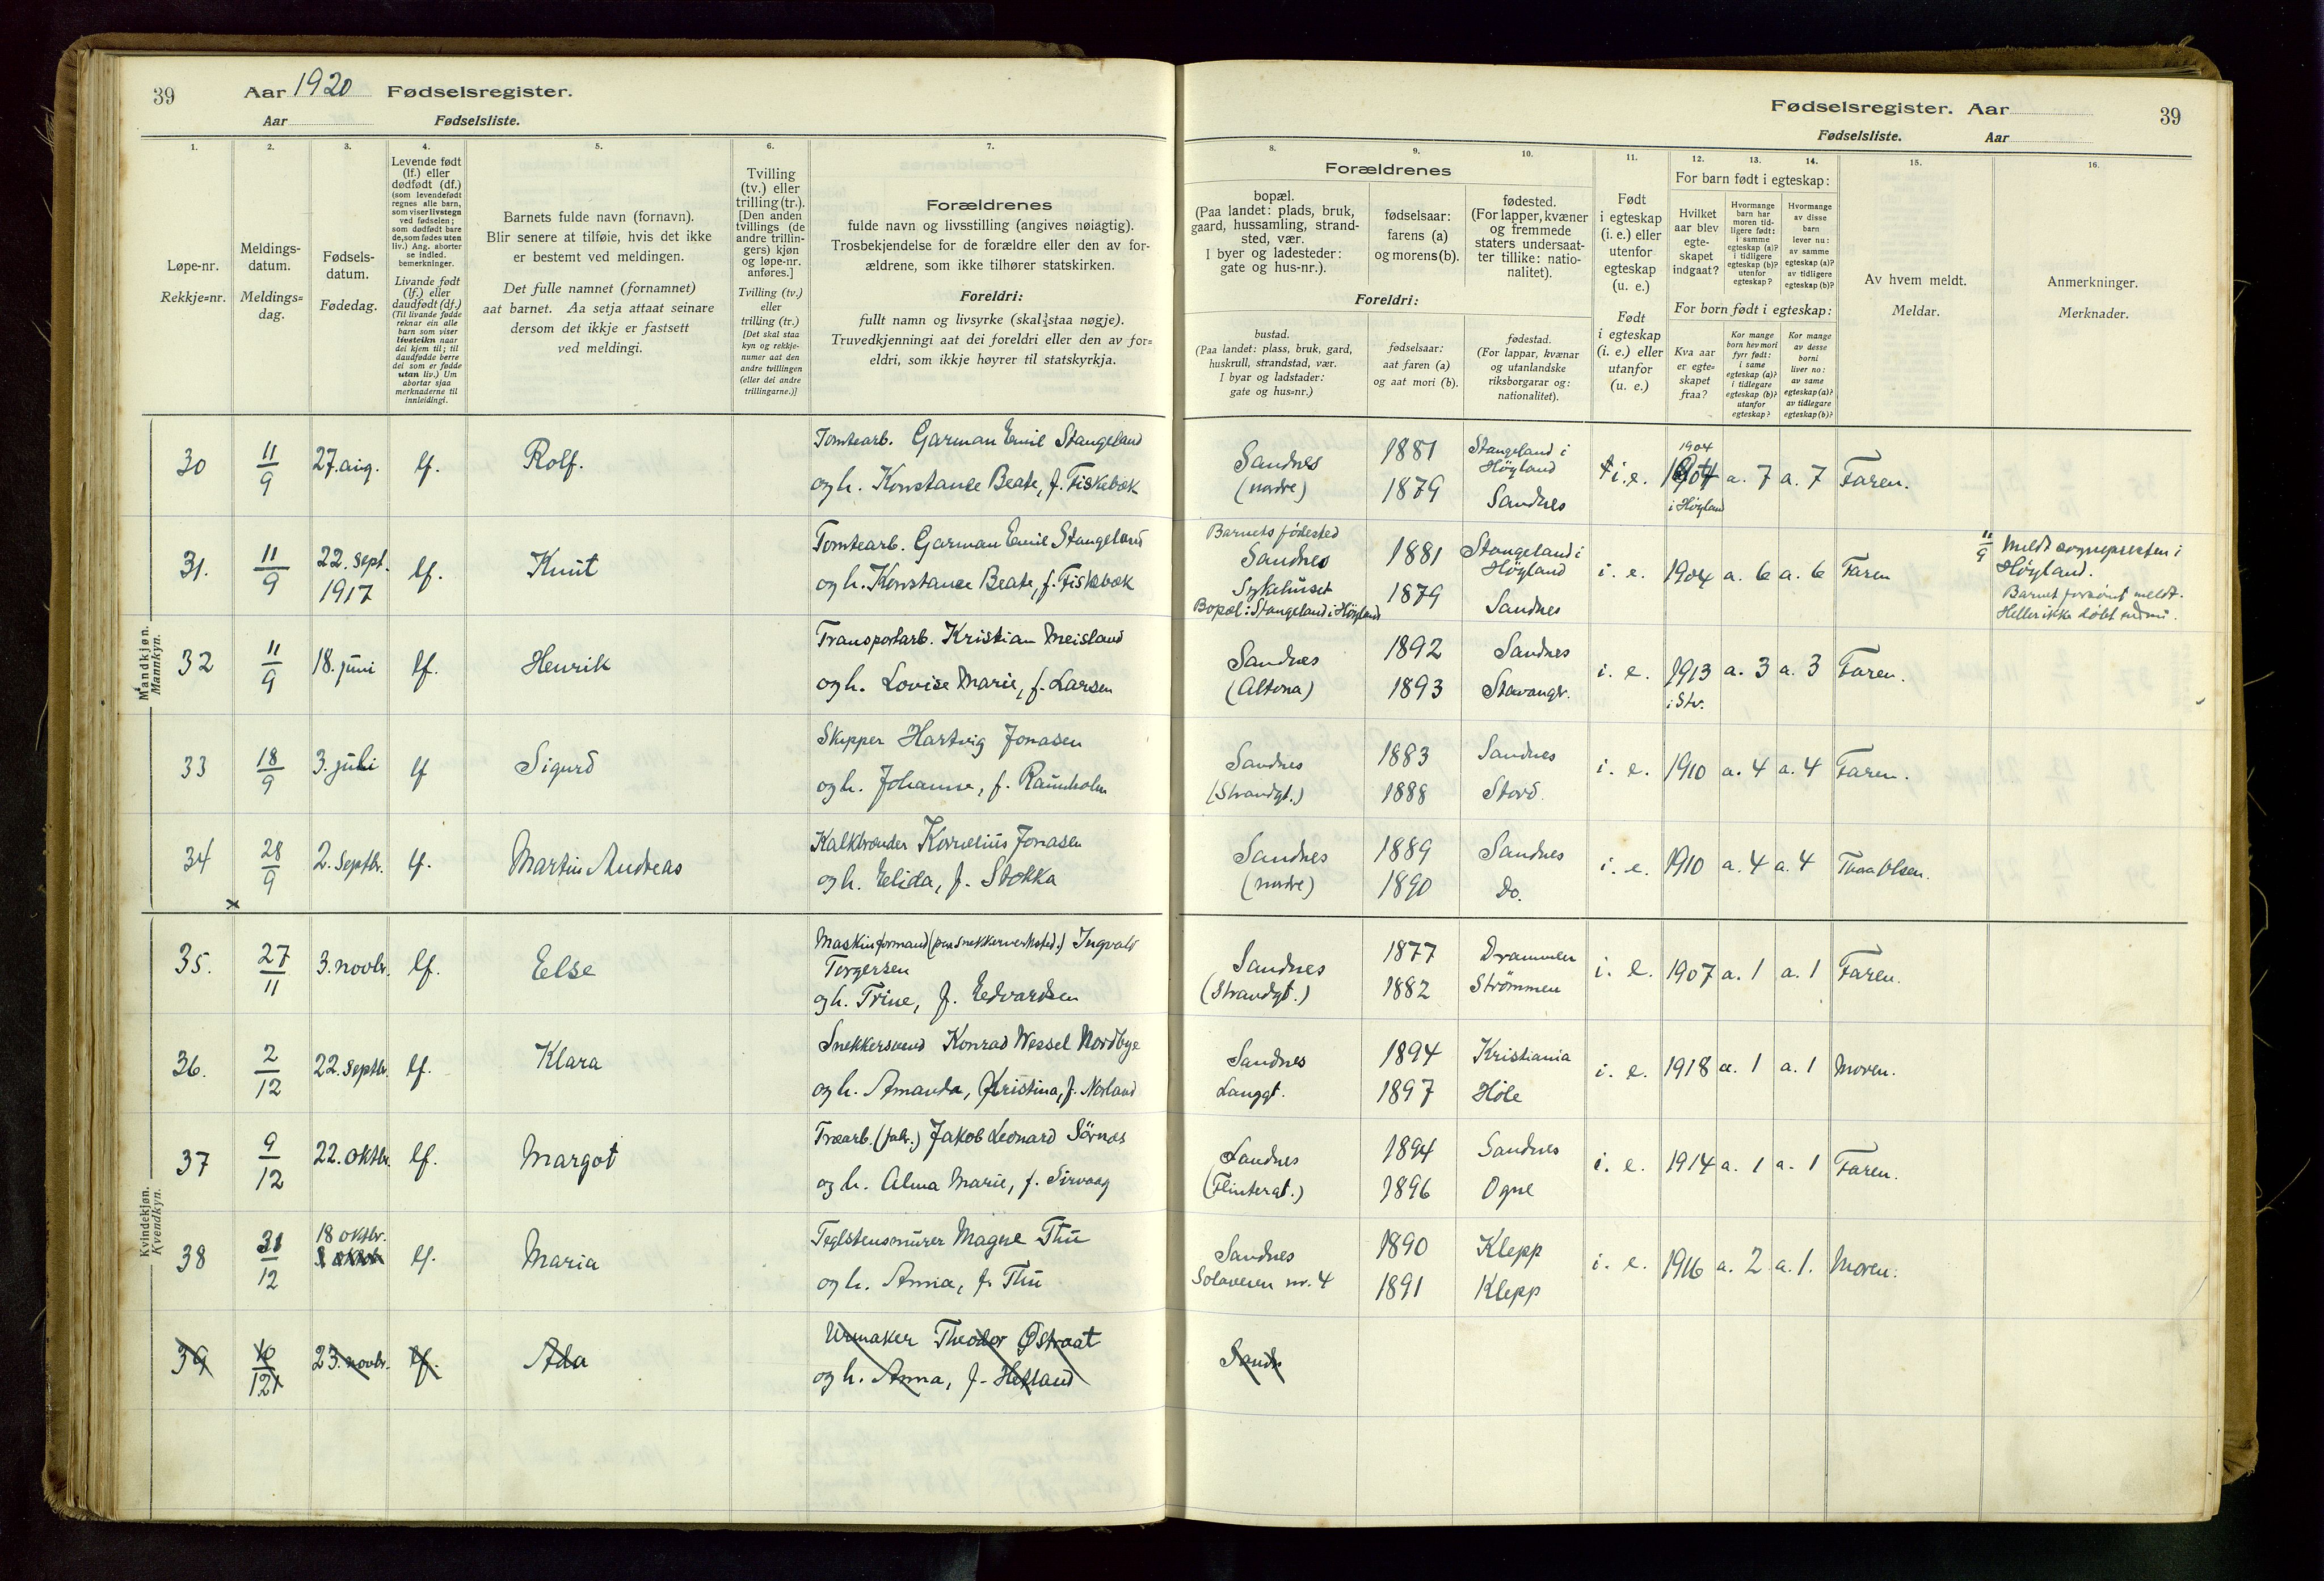 39 Aar 1920 Fødselsregister.
Aar Fødselsliste.
1. 2. 3. 4. 5. 6. 7.
Løpe-nr.
Rekkje-nr.
Meldings-
datum.
Meldings-
dag.
Fødsels-
datum.
Fødedag.
Levende født
(lf.) eller
dødfødt (df.)
(som levendefødt
regnes alle barn,
som viser livstegn
ved fødselen;
som dødfødt bare
de, som fødes uten
liv.) Ang. aborter
se indled.
bemerkninger.
Livande født
(lf.) eller
daudfødt (df.)
(Til livande fødde
reknar ein alle
barn som viser
livsteikn naar
dei kjem til; til
daudfødde berre
dei som er fødde
utan liv.) Um
abortar sjaa
merknaderne til
innleidingi.
Barnets fulde navn (fornavn).
Blir senere at tilføie, hvis det ikke
er bestemt ved meldingen.
Det fulle namnet (fornamnet)
aat barnet. Aa setja attaat seinare
dersom det ikkje er fastsett
ved meldingi.
Tvilling
(tv.) eller
trilling (tr.).
[Den anden
tvillings (de
andre trillin-
gers) kjøn
og løpe-nr.
anføres.]
Tvilling (tv.)
eller
trilling (tr.)
[Det skal staa
kyn og rekkje-
numer aat den
andre tvillingen
(eller dei andre
trillingarne.)]
Forældrenes
fulde navn og livsstilling (angives nøiagtig).
Trosbekjendelse for de forældre eller den av for-
ældrene, som ikke tilhører statskirken.
Foreldri:
fullt namn og livsyrke (skal staa nøgje).
Truvedkjenningi aat dei foreldri eller den av for-
eldri, som ikkje høyrer til statskyrkja.
Fødselsregister. Aar 39
Fødselsliste. Aar
8. 9. 10. 11. 12. 13. 14. 15. 16.
Forældrenes
bopæl.
(Paa landet: plads, bruk,
gaard, hussamling, strand-
sted, vær.
I byer og ladesteder:
gate og hus-nr.).
fødselsaar:
farens (a)
og morens (b).
fødested.
(For lapper, kvæner
og fremmede
staters undersaat-
ter tillike: natio-
nalitet).
Foreldri:
bustad.
(Paa landet: plass, bruk, gard,
huskrull, strandstad, vær.
I byar og ladstader:
gate og hus-nr.)
fødselsaar:
aat faren (a)
og aat mori (b).
fødestad.
(For lappar, kvænar
og utanlandske
riksborgarar og:
nationalitet).
Født
i egteskap
(i. e.) eller
utenfor
egteskap
(u. e.)
Født
i egteskap
(i. e.) eller
utanfor
(u. e.)
For barn født i egteskap:
Hvilket
aar blev
egte-
skapet
indgaat?
Hvormange
barn har
moren tid-
ligere født:
i samme
egteskap (a)?
i tidligere
egteskap (b)?
utenfor
egteskap?
Hvormange
av disse
barn
lever nu:
av samme
egteskap (a)?
av tidligere
egteskap (b)?
For born født i egteskap:
Kva aar
er egte-
skapet
fraa?
Kor mange
born hev mori
fyrr født:
i same
egteskap (a)?
i tidlegare
egteskap (b)?
utanfor
egteskap?
Kor mange
av desse
borni
liver no:
av same
egteskap (a)?
av tidlegare
egteskap (b)?
Av hvem meldt.
Meldar.
Anmerkninger.
Merknader.
Mandkjøn.
Mannkyn.
30 11/9 27. aug. lf. Rolf. Tomtearb. Garman Emil Stangeland
og h. Konstanse Beate, f. Fiskebæk
Sandnes (nordre) 1881 1879 Stangeland i Høyland Sandnes i. e. 1904 1904 i Høyland a. 7 a. 7 Faren.
31. 11/9 22. sept. 1917 lf. Knut Tomtearb. Garman Emil Stangeland
og h. Konstanse Beate, f. Fiskebæk
Barnets fødested
Sandnes
Sykehuset
Bopæl: Stangeland i Høyland
1881 1879 Stangeland i Høyland Sandnes i. e. 1904 a. 6 a. 6 Faren
11/9 Meldt sognepresten i
Høyland.
Barnet forsømt meldt.
Heller ikke døbt endnu.
32 11/9 18. juni lf. Henrik Transportarb. Kristian Meisland
og h. Lovise Marie, f. Larsen
Sandnes (Altona) 1892 1893 Sandnes Stavanger. i. e. 1913 i Stv. a. 3 a. 3 Faren.
33 18/9 3. juli lf Sigurd Skipper Hartvig Jonasen
og h. Johanne, f. Raunholm
Sandnes (Strandgt.) 1883 1888 Sandnes Stord. i. e. 1910 a. 4 a. 4 Faren.
34 28/9 2. septbr. lf. Martin Andreas Kalkbrænder Kornelius Jonasen
og h. Elida, f. Stokka
Sandnes (nordre) 1889 1890 Sandnes Do. i. e. 1910 a. 4 a. 4 Olsen.
x
Kvindekjøn.
Kvendkyn.
35. 27/11 3. novbr. lf. Else Maskinformand (paa snekkerverksted.) Ingvald
Torgersen
og h. Trine, f. Edvardsen
Sandnes (Strandgt.) 1877 1882 Drammen Strømmen i. e. 1907 a. 1 a. 1 Faren.
36. 2/12 22. septbr. lf. Klara Snekkersvend Konrad Wessel Nordbye
og h. Amanda, Kristina, f. Norland
Sandnes Langgt. 1894 1897 Kristiania Høle i. e. 1918 a. 1 a. 1 Moren.
37 9/12 22. oktbr. lf. Margot Træarb. (fabr.) Jakob Leonard Sørnes
og h. Alma Marie, f. Sirvaag
Sandnes (Flintergt.) 1894 1896 Sandnes Ogne i. e. 1914 a. 1 a. 1 Faren.
38 31/12 18 oktbr. lf. Maria Teglstensmurer Magne Thu
og h. Anna, f. Thu
Sandnes Solaveien nr. 4 1890 1891 Klepp Klepp i. e. 1916 a. 2 a. 1. Moren.
39 10/12 23. novbr. lf. Ada Urmaker Theodor Østraat
og h. Anna, f. Hetland
Sandn